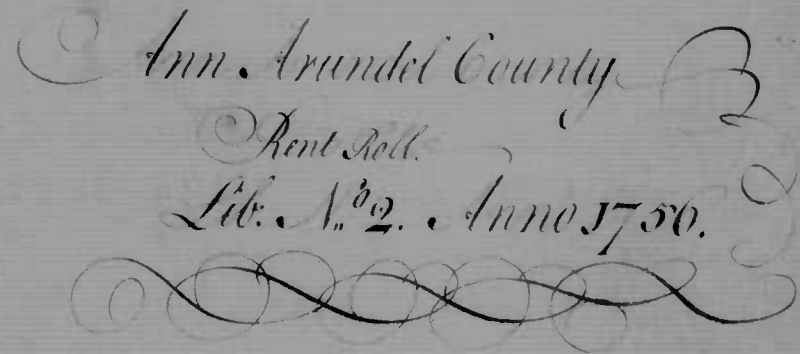 Ann Arundel County
Rent Roll.
Lib. No. 2. Anno 1756.